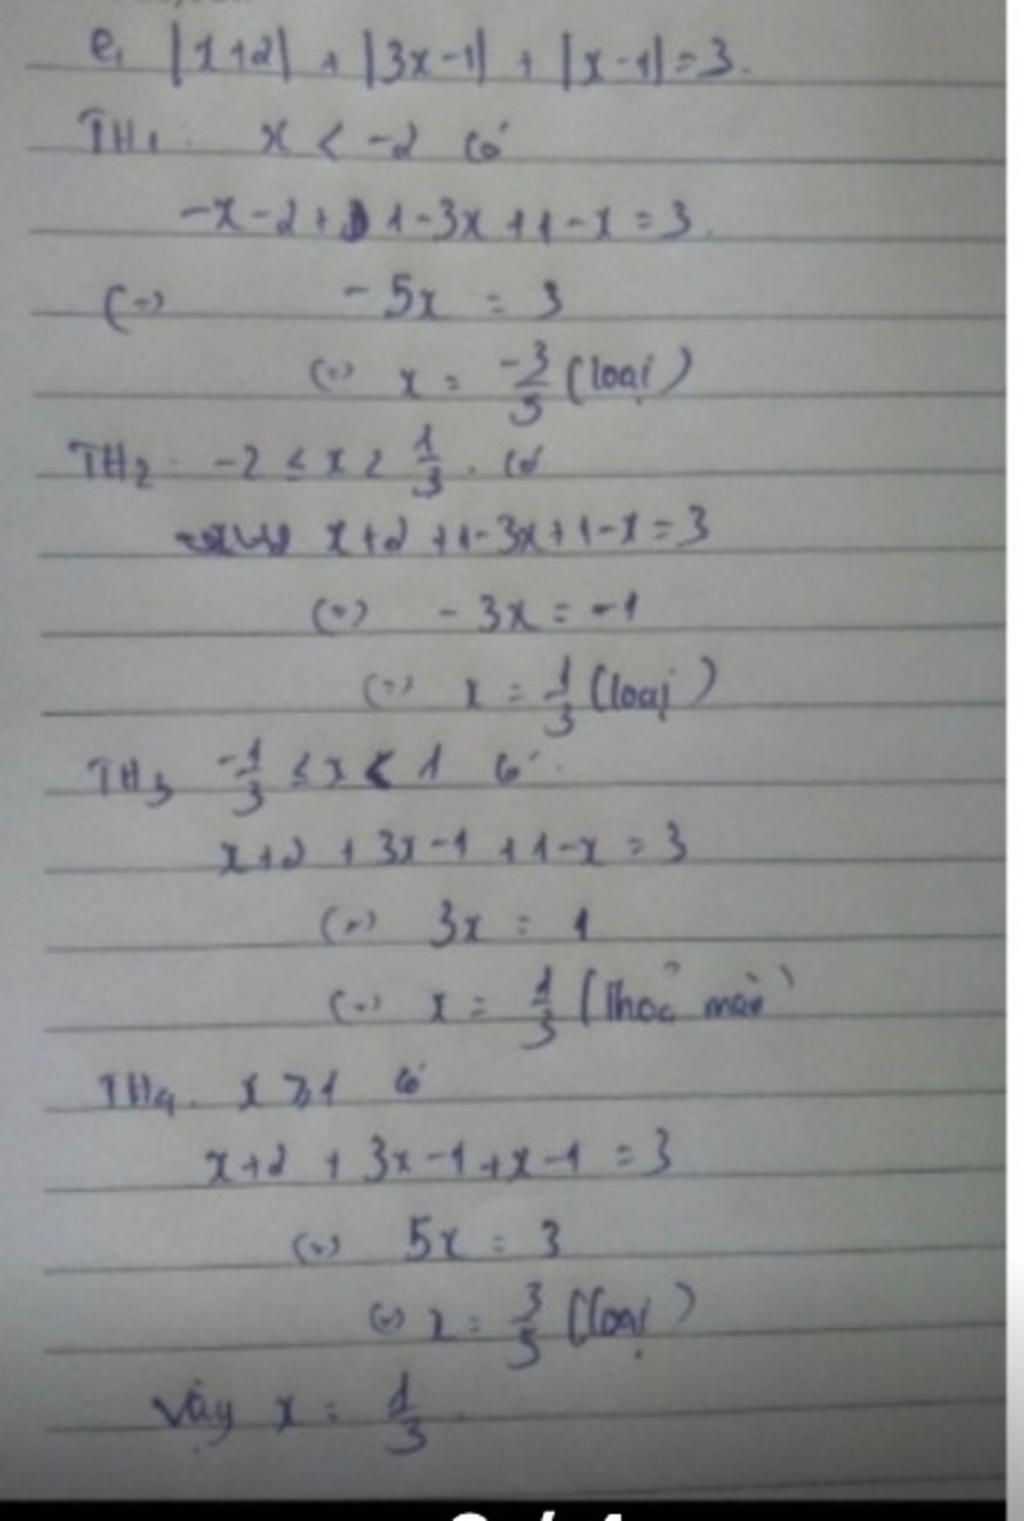 e, |x+2| + |3x-1| + |x-1| = 3.
TH1: x < -2 có
-x-2+1-3x+1-x = 3.
(=) -5x = 3
(=) x = -3/5 (loại)
TH2. -2 ≤ x > 1/3. có
x+2+1-3x+1-x = 3
(=) -3x = -1
(=) x = 1/3 (loại)
TH3 -1/3 ≤ x < 1 có
x+2 + 3x-1 +1-x = 3
(=) 3x = 1
(=) x = 1/3 (Thoả mãn)
TH4. x ⩾ 1 có
x+2 + 3x-1+x-1 = 3
(=) 5x = 3
(=) x = 3/5 (loại)
Vậy x = 1/3.